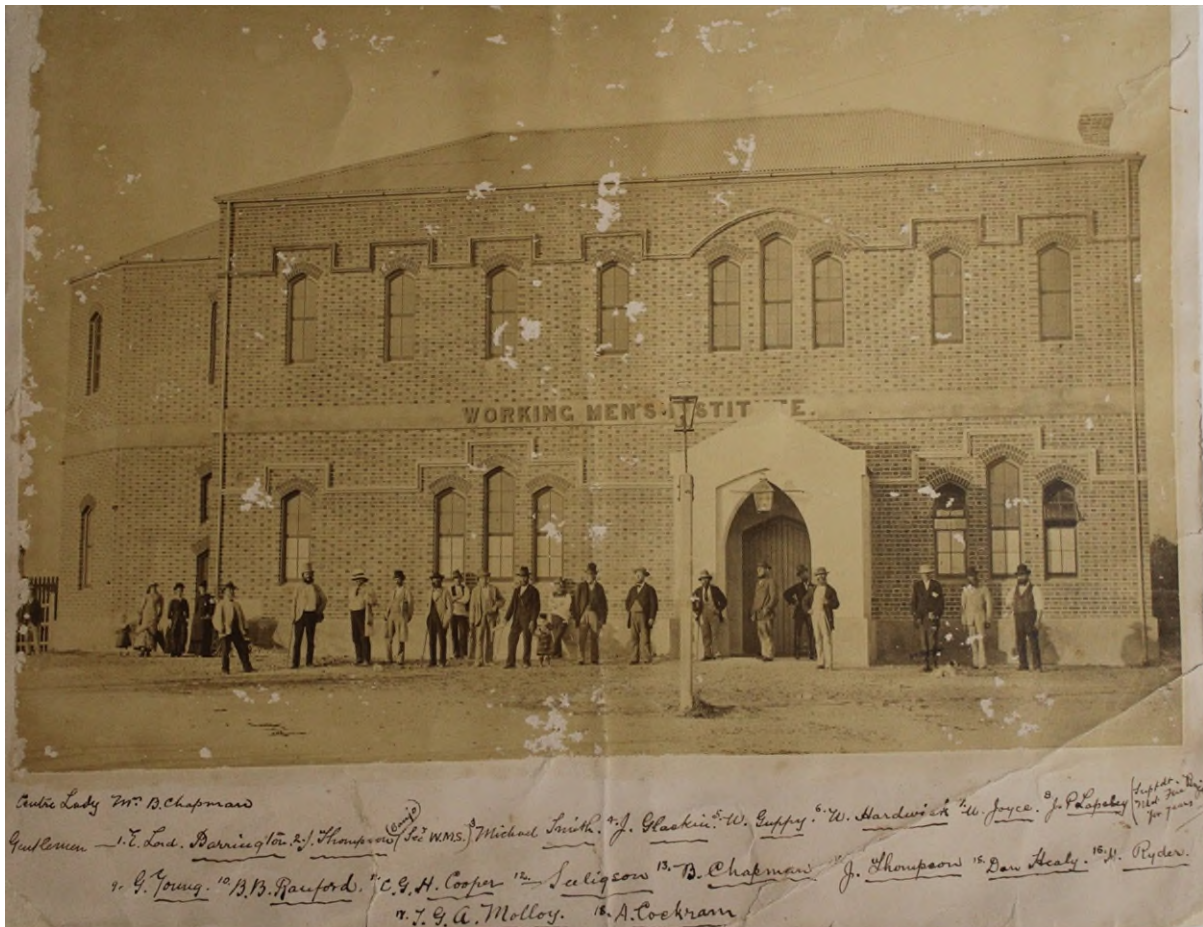 WORKING MEN'S INSTIT TE.
Centre Lady Mrs B. Chapman
Gentlemen — 1. E. Lord. Barrington. 2. J. Thompson (Sec W.M.S.) 3 Michael Smith. 4. J. Glaskin. 5. W. Guppy. 6. W. Hardwick 7. W. Joyce. 8. J. P. Lapsley (Suppdt
for years
9. G. Young. 10. B. B. Ranford. 11. C. G. H. Cooper 12. — Seeligson 13. B. Chapman 14. J. Thompson 15. Dan Healy. 16. H. Ryder.
17. T. G. A. Molloy. 18. A. Cockram